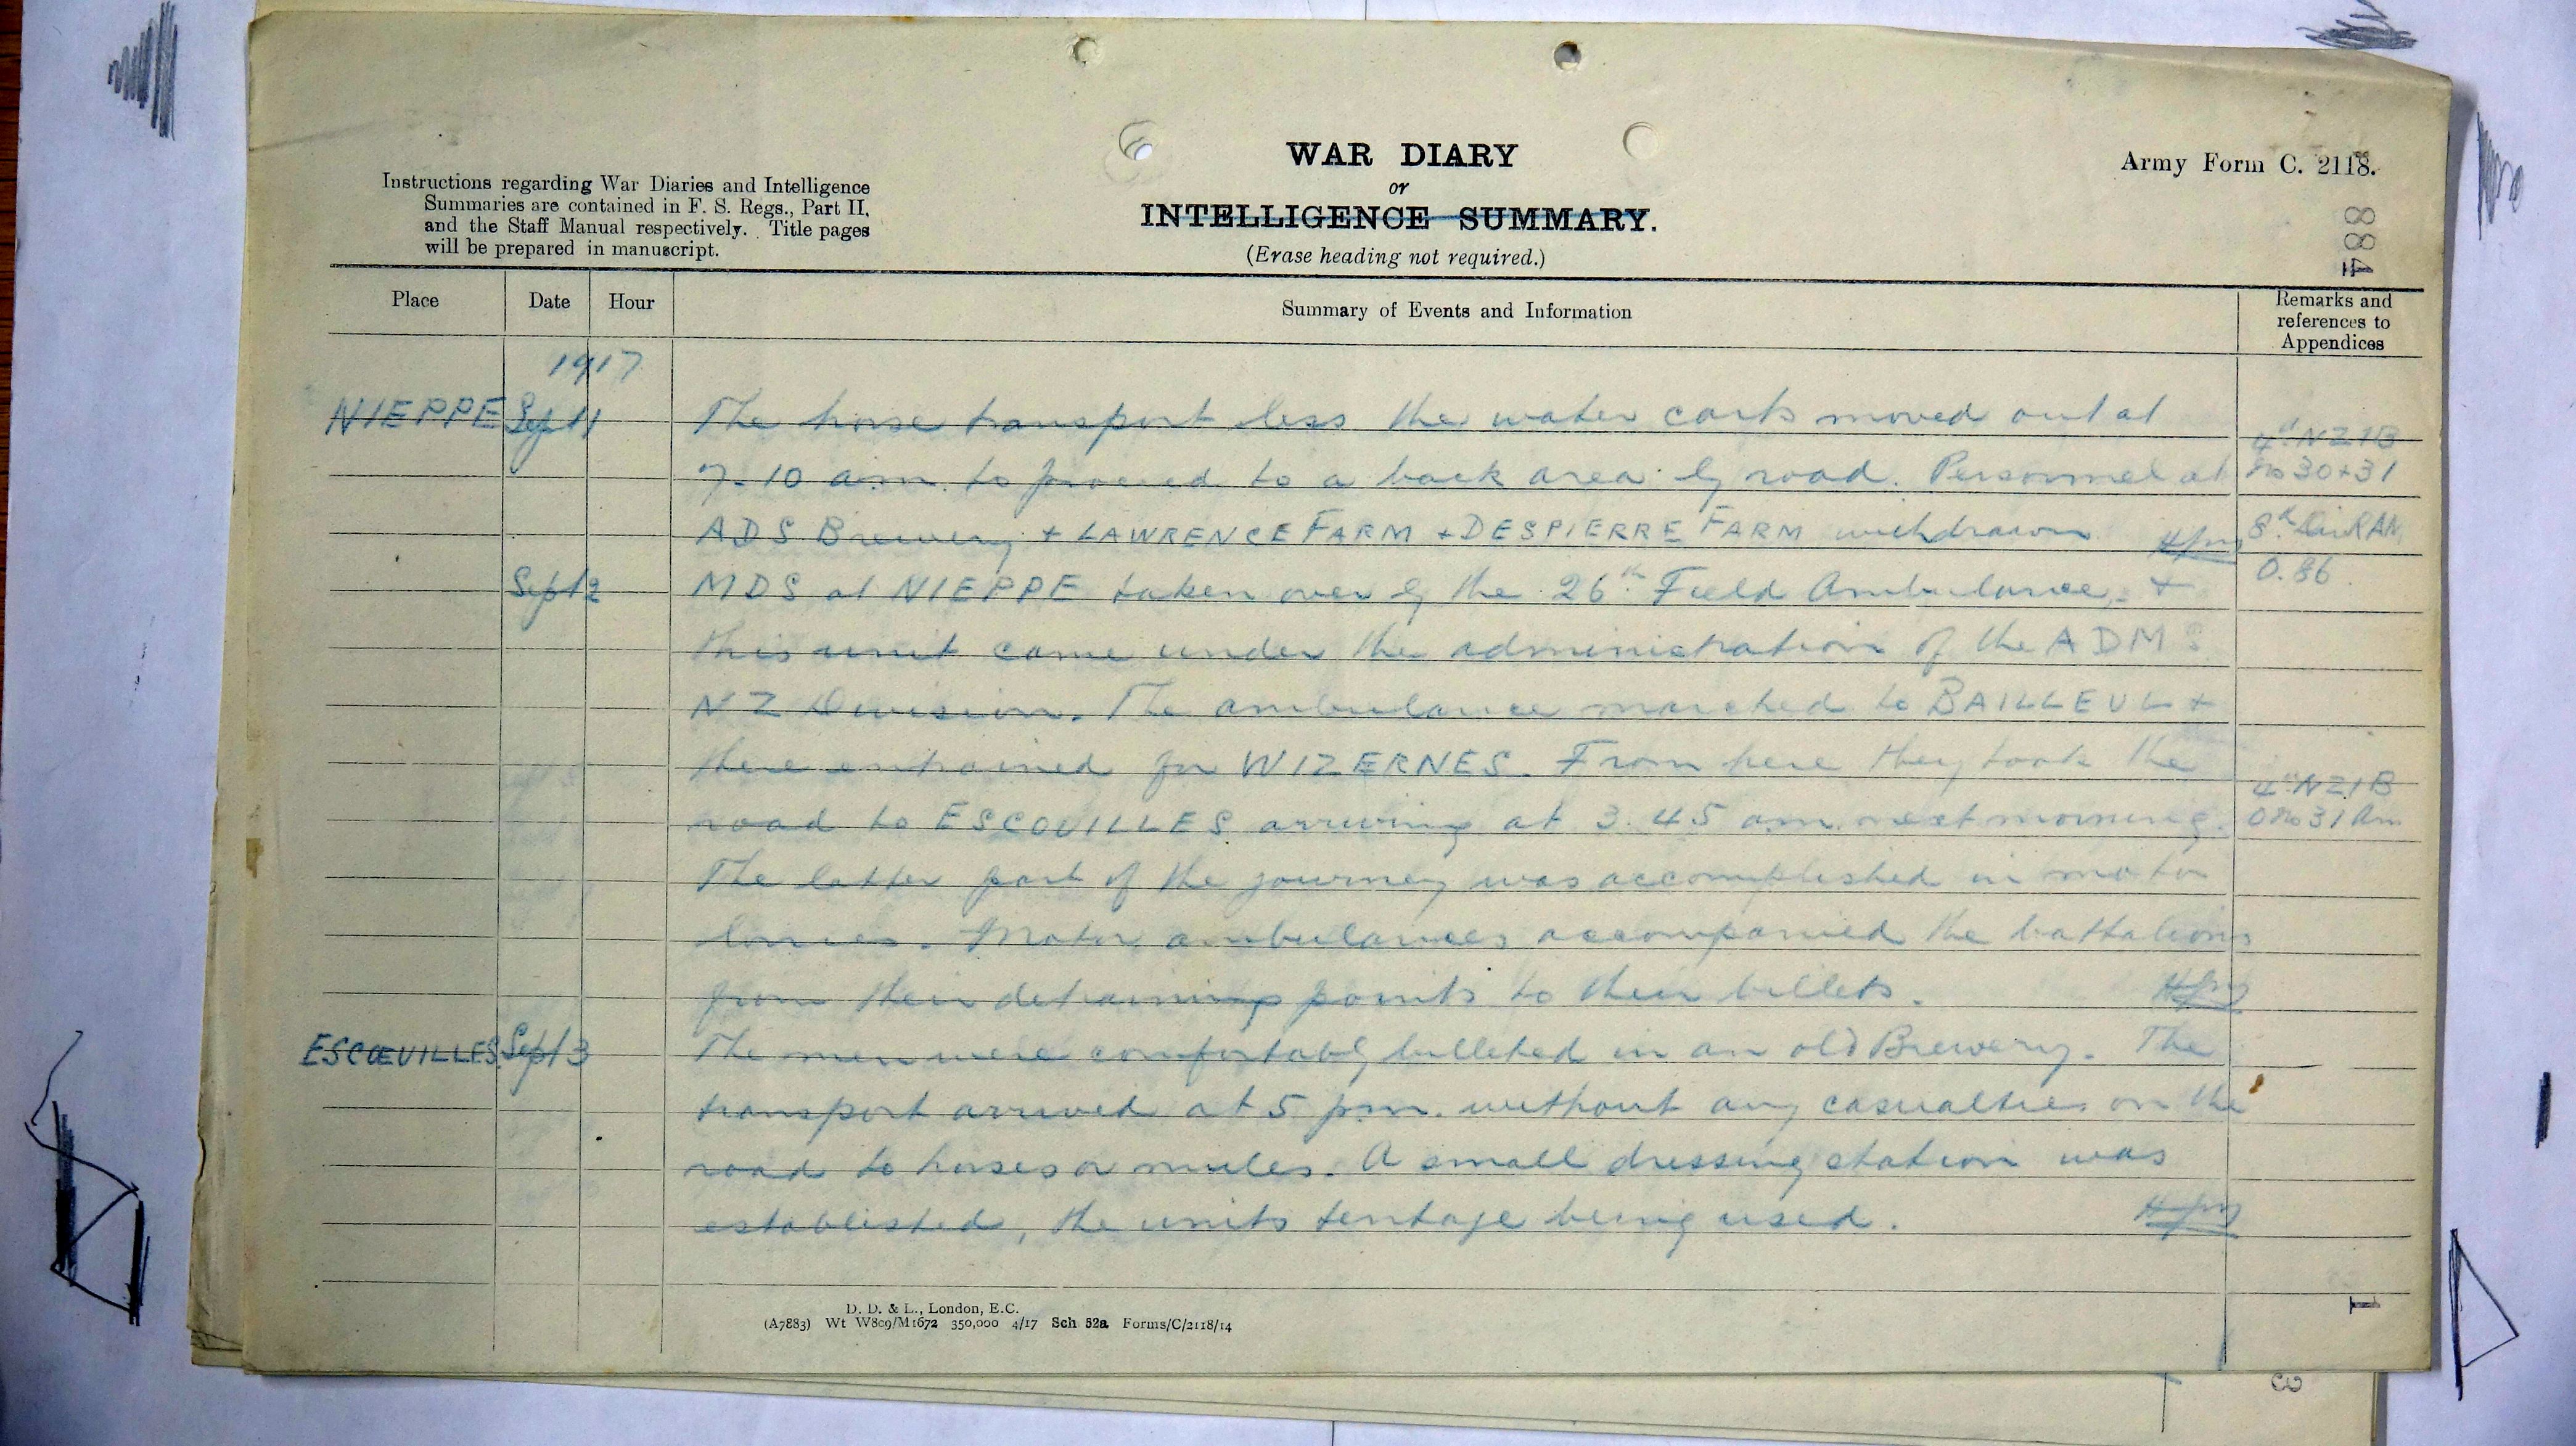 WAR DIARY
or
INTELLIGENCE SUMMARY.
(Erase heading not required.)
Army Form C. 2118.
884
Instructions regarding War Diaries and Intelligence
Summaries are contained in F. S. Regs., Part II,
and the Staff Manual respectively. Title pages
will be prepared in manuscript.
Place Date Hour Summary of Events and Information Remarks and
references to
Appendices
1917
NIEPPE Sep 11 The horse transport less the water carts moved out at
4th NZ IB
7-10 a.m. to proceed to a back area by road. Personnel at
No 30+31
ADS Brewery + LAWRENCE FARM + DESPIERRE FARM withdrawn
8th Div RAM
O. 86
Sept 12 MDS at NIEPPE taken over by the 26th Field Ambulance, +
this unit came under the administration of the ADMS
NZ Division. The ambulance marched to BAILLEUL +
there entrained for WIZERNES. From here they took the
4th NZ IB
road to ESCOUILLES arriving at 3.45 a.m. next morning.
O No 31 Am
The latter part of the journey was accomplished in motor
lorries. Motor ambulances accompanied the battalions
from their detraining points to their billets.
ESCŒUILLES. Sept 13 The men were comfortably billeted in an old Brewery. The
transport arrived at 5 p.m. without any casualties on the
road to horses or mules. A small dressing station was
established, the units tentage being used.
D. D. & L., London, E.C.
(A7883) Wt W809/M1672 350,000 4/17 Sch 52a Forms/C/2118/14
1
3